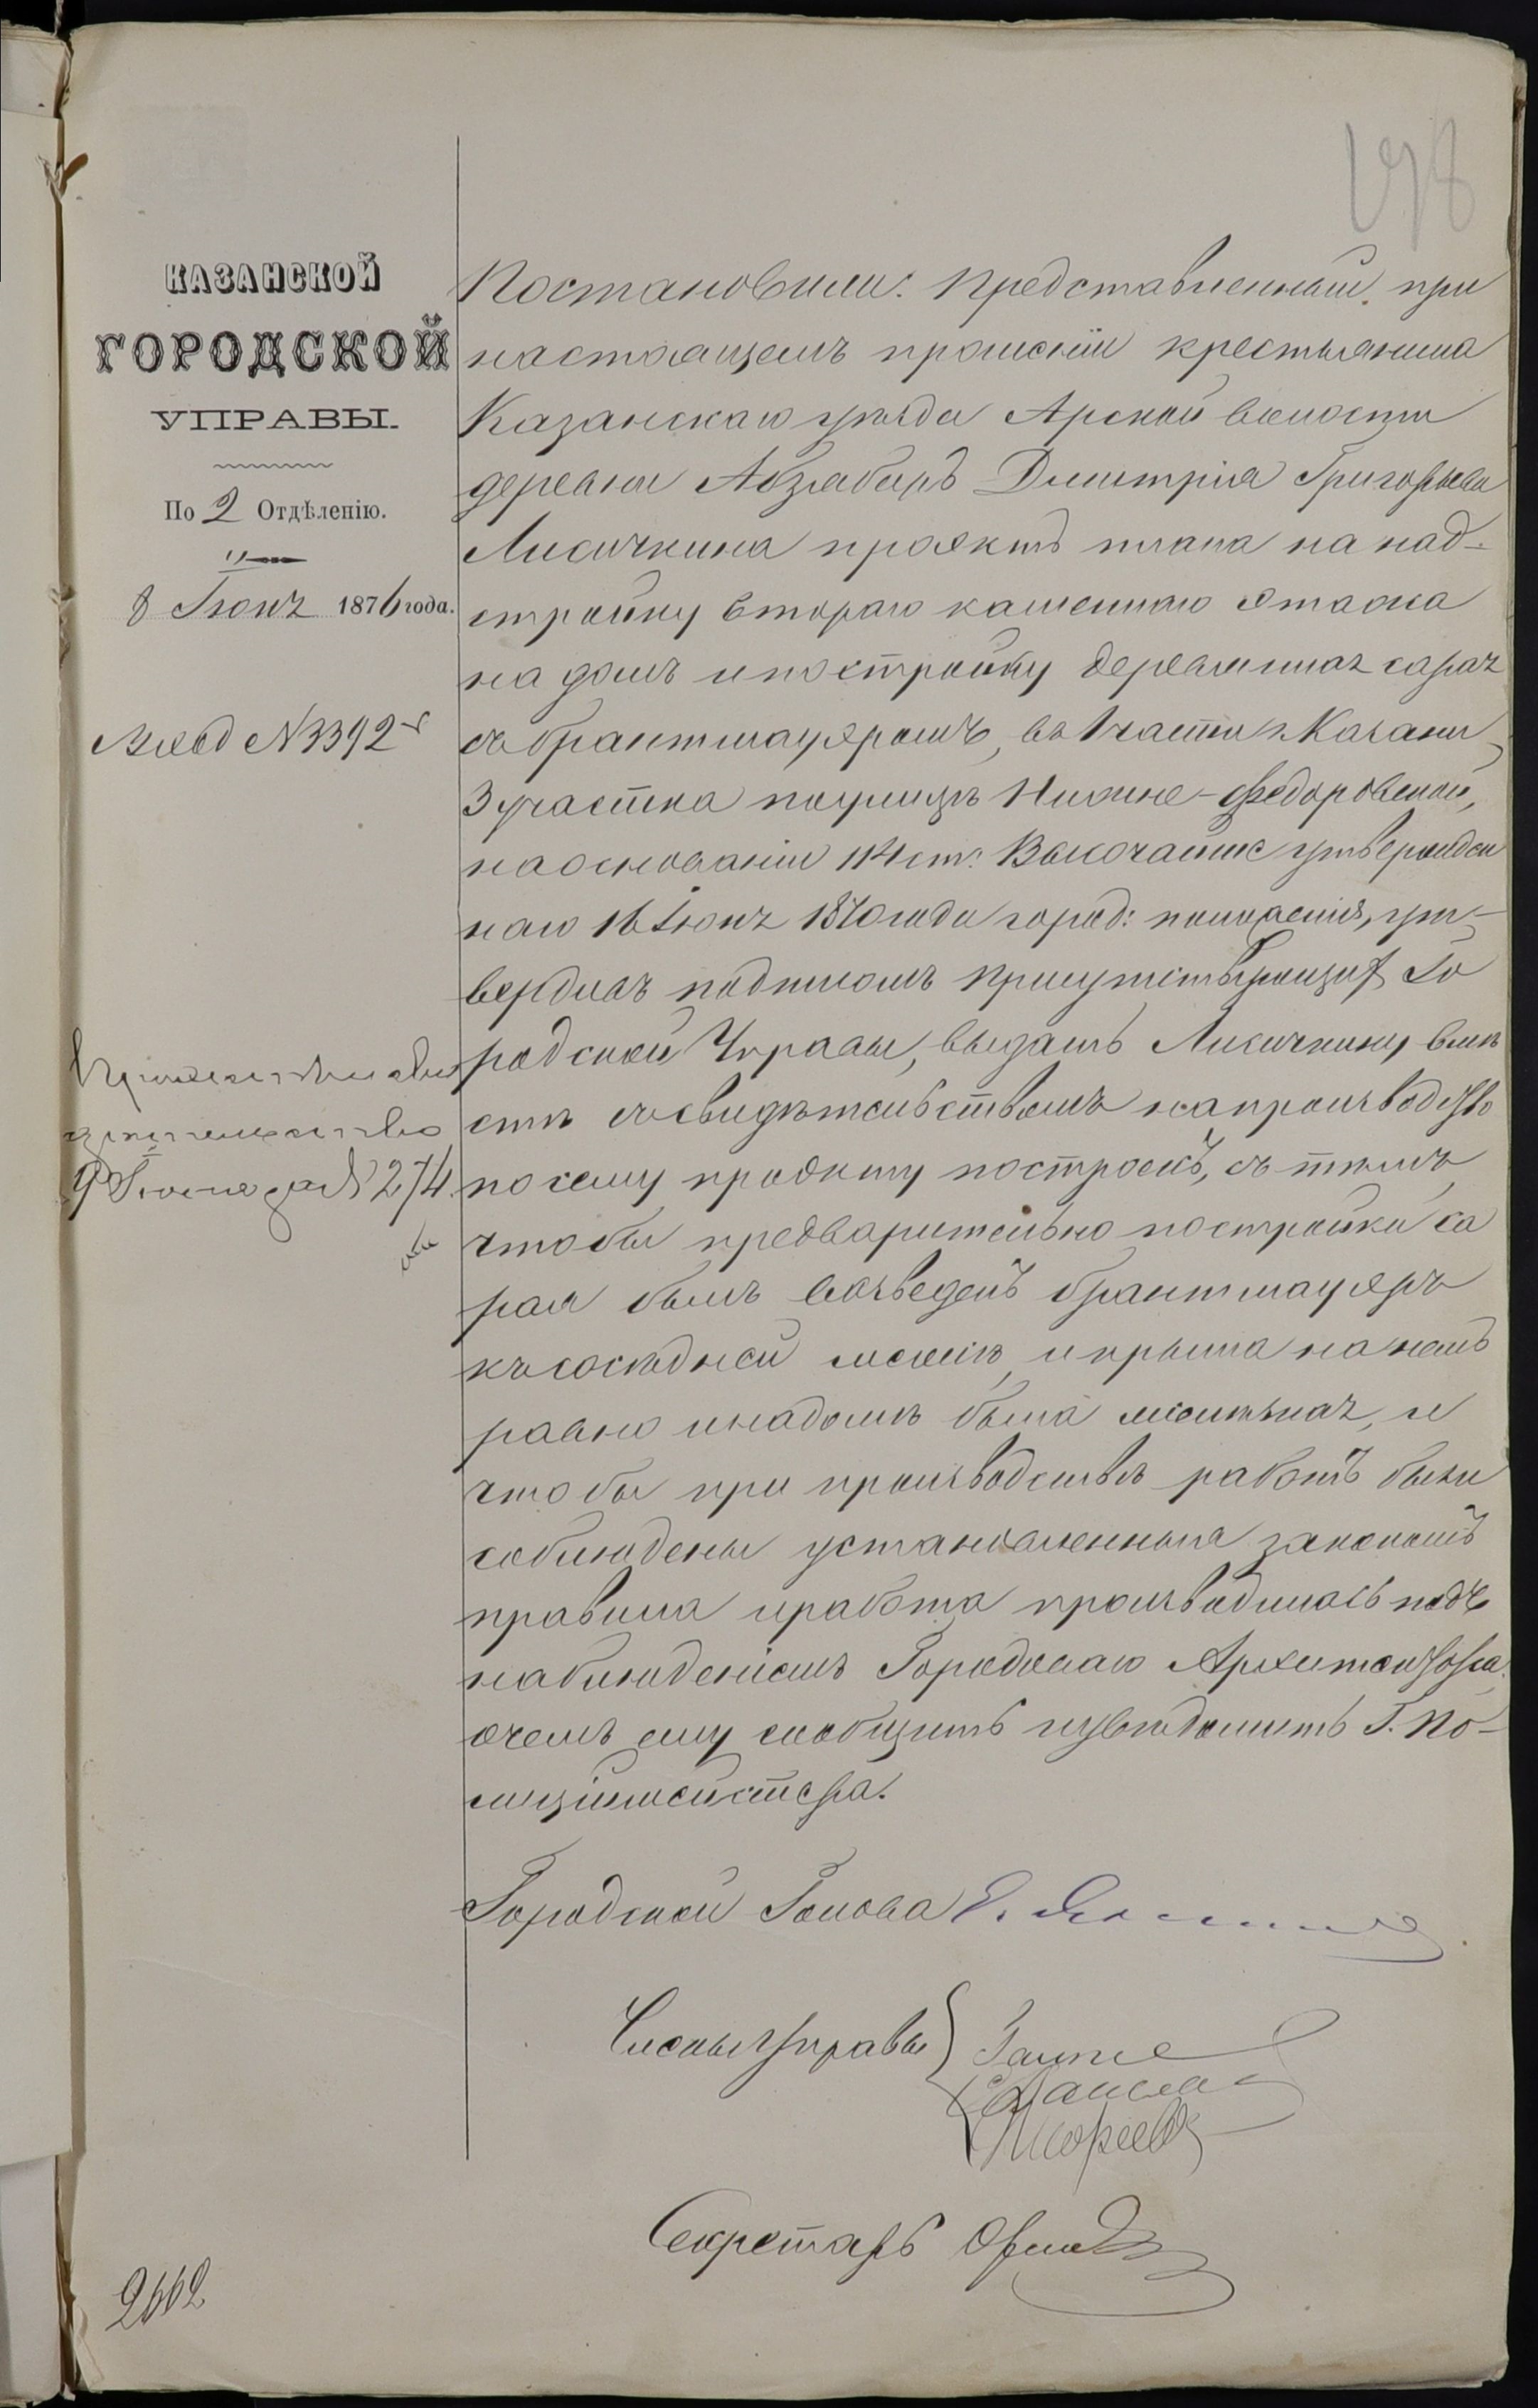 178
КАЗАНСКОЙ
ГОРОДСКОЙ
УПРАВЫ.
По 2 Отдѣленію.
8 Іюня 1876 года.
Жлбд №3392
проэктъ и сви
дѣтельство
9 Іюня за № 274.
2662
Постановили: Представленный при
настоящемъ прошеніи крестьянина
Казанскаго уѣзда Арской волости
деревни Абзябаръ Димитрія Григорьева
Лисичкина проэктъ плана на над-
стройку втораго каменнаго этажа
на домъ и постройку деревянная сарая
съ брантмауэромъ, въ 1 части г. Казани,
3 участка по улицѣ Нижне-Федоровской,
на основаніи 114 ст. Высочайше утвержден
наго 16 Іюня 1870 года город: положенія, ут-
вердивъ подписомъ присутствующихъ Го
родской Управы, выдать Лисичкину вмѣ
стѣ съ свидѣтельствомъ на производство
по сему проэкту построекъ, съ тѣмъ,
чтобы предварительно постройки са
рая былъ возведенъ брантмауэръ
къ сосѣдней межѣ, и крыша на немъ
равно и на домѣ была желѣзная, и
чтобы при производствѣ работъ были
соблюдены установленныя закономъ
правила и работа производилась подъ
наблюденіемъ Городскаго Архитектора,
о чемъ ему сообщить и увѣдомить Г. По-
лиціймейстера.
Городской Голова
Члены Управы
Секретарь